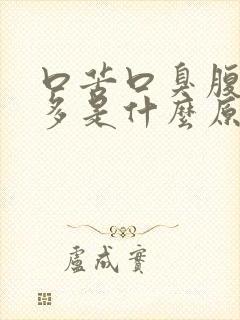 口苦口臭腹
多是什麼原
盧成實